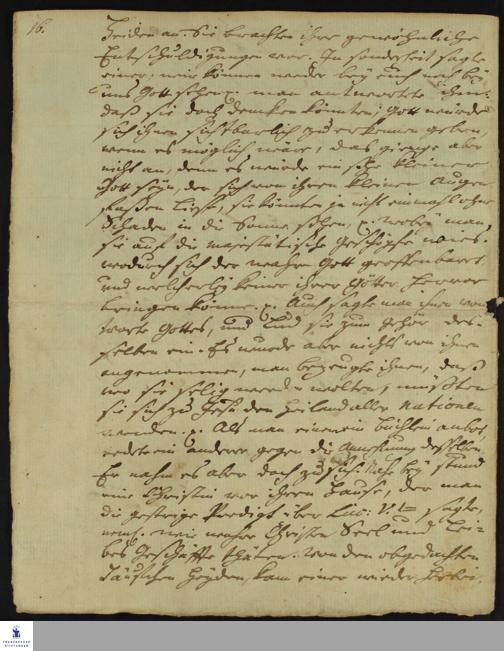 16.
Heiden an. Sie brachten ihre gewöhnliche
Entschuldigungen vor. In sonderheit sagte
einer; wir können weder bey euch noch bey
uns Gott sehen: man antwortete ihm:
daß sie doch dencken könnten; Gott würde
sich ihnen sichtbarlich zu erkennen geben,
wenn es möglich wäre, das gienge aber
nicht an, denn es würde ein sehr kleiner
Gott seyn, der sich von ihren kleinen Augen
faßen ließe, sie könnten ja nicht einmahl ohne
Schaden in die Sonne sehen, p. wobey man
sie auf die majestätische Geschöpfe wies
wodurch sich der wahre Gott geoffenbaret
und welcherley keiner ihrer Götter hervor
bringen könne. p. Auch sagte man ihnen vom
Worte Gottes, und lud sie zum Gehör des-
selben ein. Es wurde aber nichts von ihnen
angenommen, man bezeugte ihnen, daß
wo sie selig werden wolten, müßten
sie sich zu Jesu dem Heiland aller Nationen
wenden. p. Als man einem ein Büchlein anbot,
redete ein anderer gegen die Annehmung desselben
Er nahm es aber doch zu sich. Nahe bey stund
eine Christin vor ihrem Hause, der man
die gestrige Predigt über Luc: V. sagte,
wie wahre Christen Seel und Lei-
bes Geschäffte thäten. Von den obgedachten
Heyden, kam einer wieder herbei,
FRANCKESCHE
STIFTUNGEN